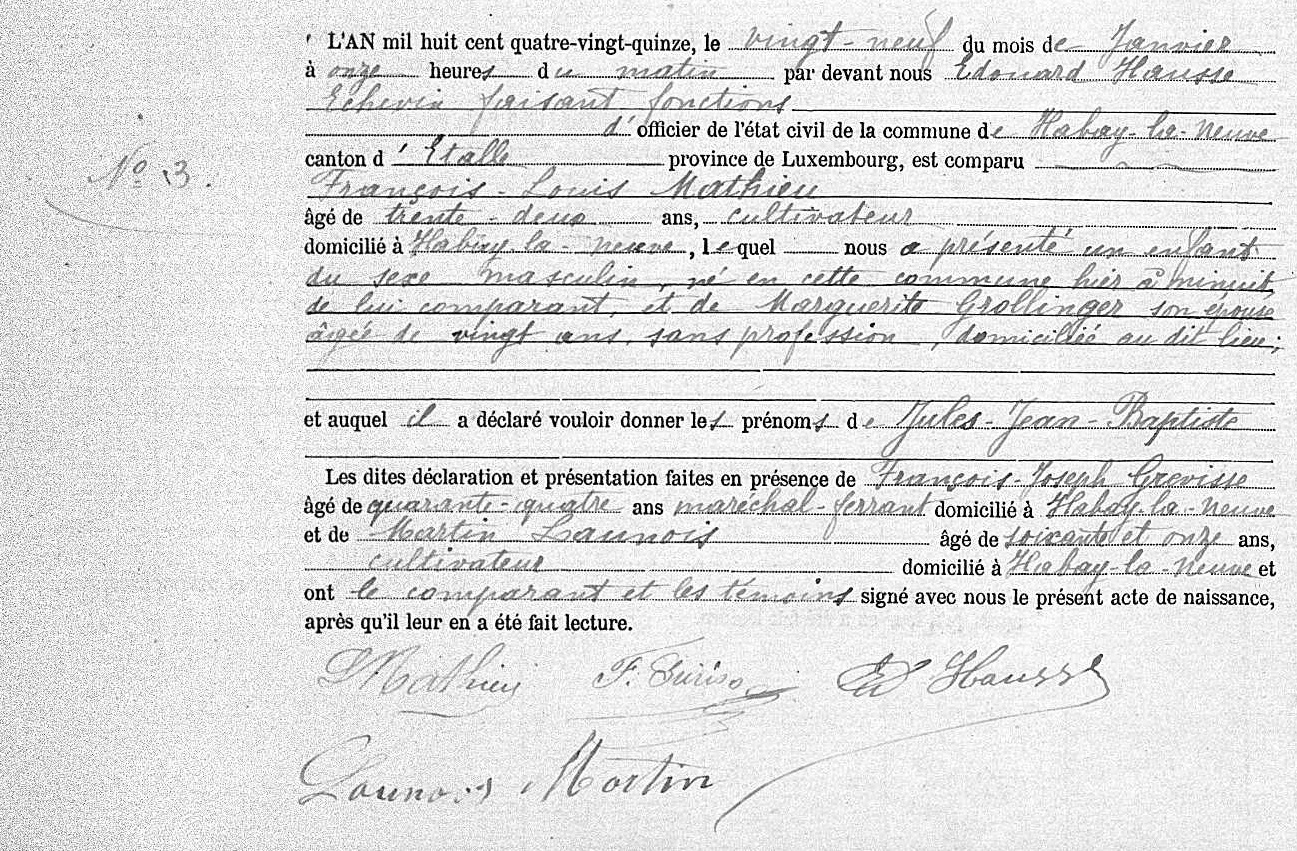 L'AN mil huit cent quatre-vingt-quinze, le vingt-neuf du mois de Janvier
à onze heures du matin par devant nous Edouard Hausse
Echevin faisant fonctions
d'officier de l'état civil de la commune de Habay-la-Neuve
canton d'Etalle province de Luxembourg, est comparu
No 3.
François-Louis Mathieu
âgé de trente-deux ans, cultivateur
domicilié à Habay-la-neuve, lequel nous a présenté un enfant
du sexe masculin, né en cette commune hier à minuit,
de lui comparant, et de Marguerite Grollinger son épouse
âgée de vingt ans, sans profession, domiciliée au dit lieu;
et auquel il a déclaré vouloir donner les prénoms de Jules-Jean-Baptiste
Les dites déclaration et présentation faites en présence de François-Joseph Grevisse
âgé de quarante-quatre ans maréchal-ferrant domicilié à Habay-la-Neuve
et de Martin Launois âgé de soixante et onze ans,
cultivateur domicilié à Habay-la-Neuve et
ont le comparant et les témoins signé avec nous le présent acte de naissance,
après qu'il leur en a été fait lecture.
Mathieu F. Ed Hausse
Launois Martin